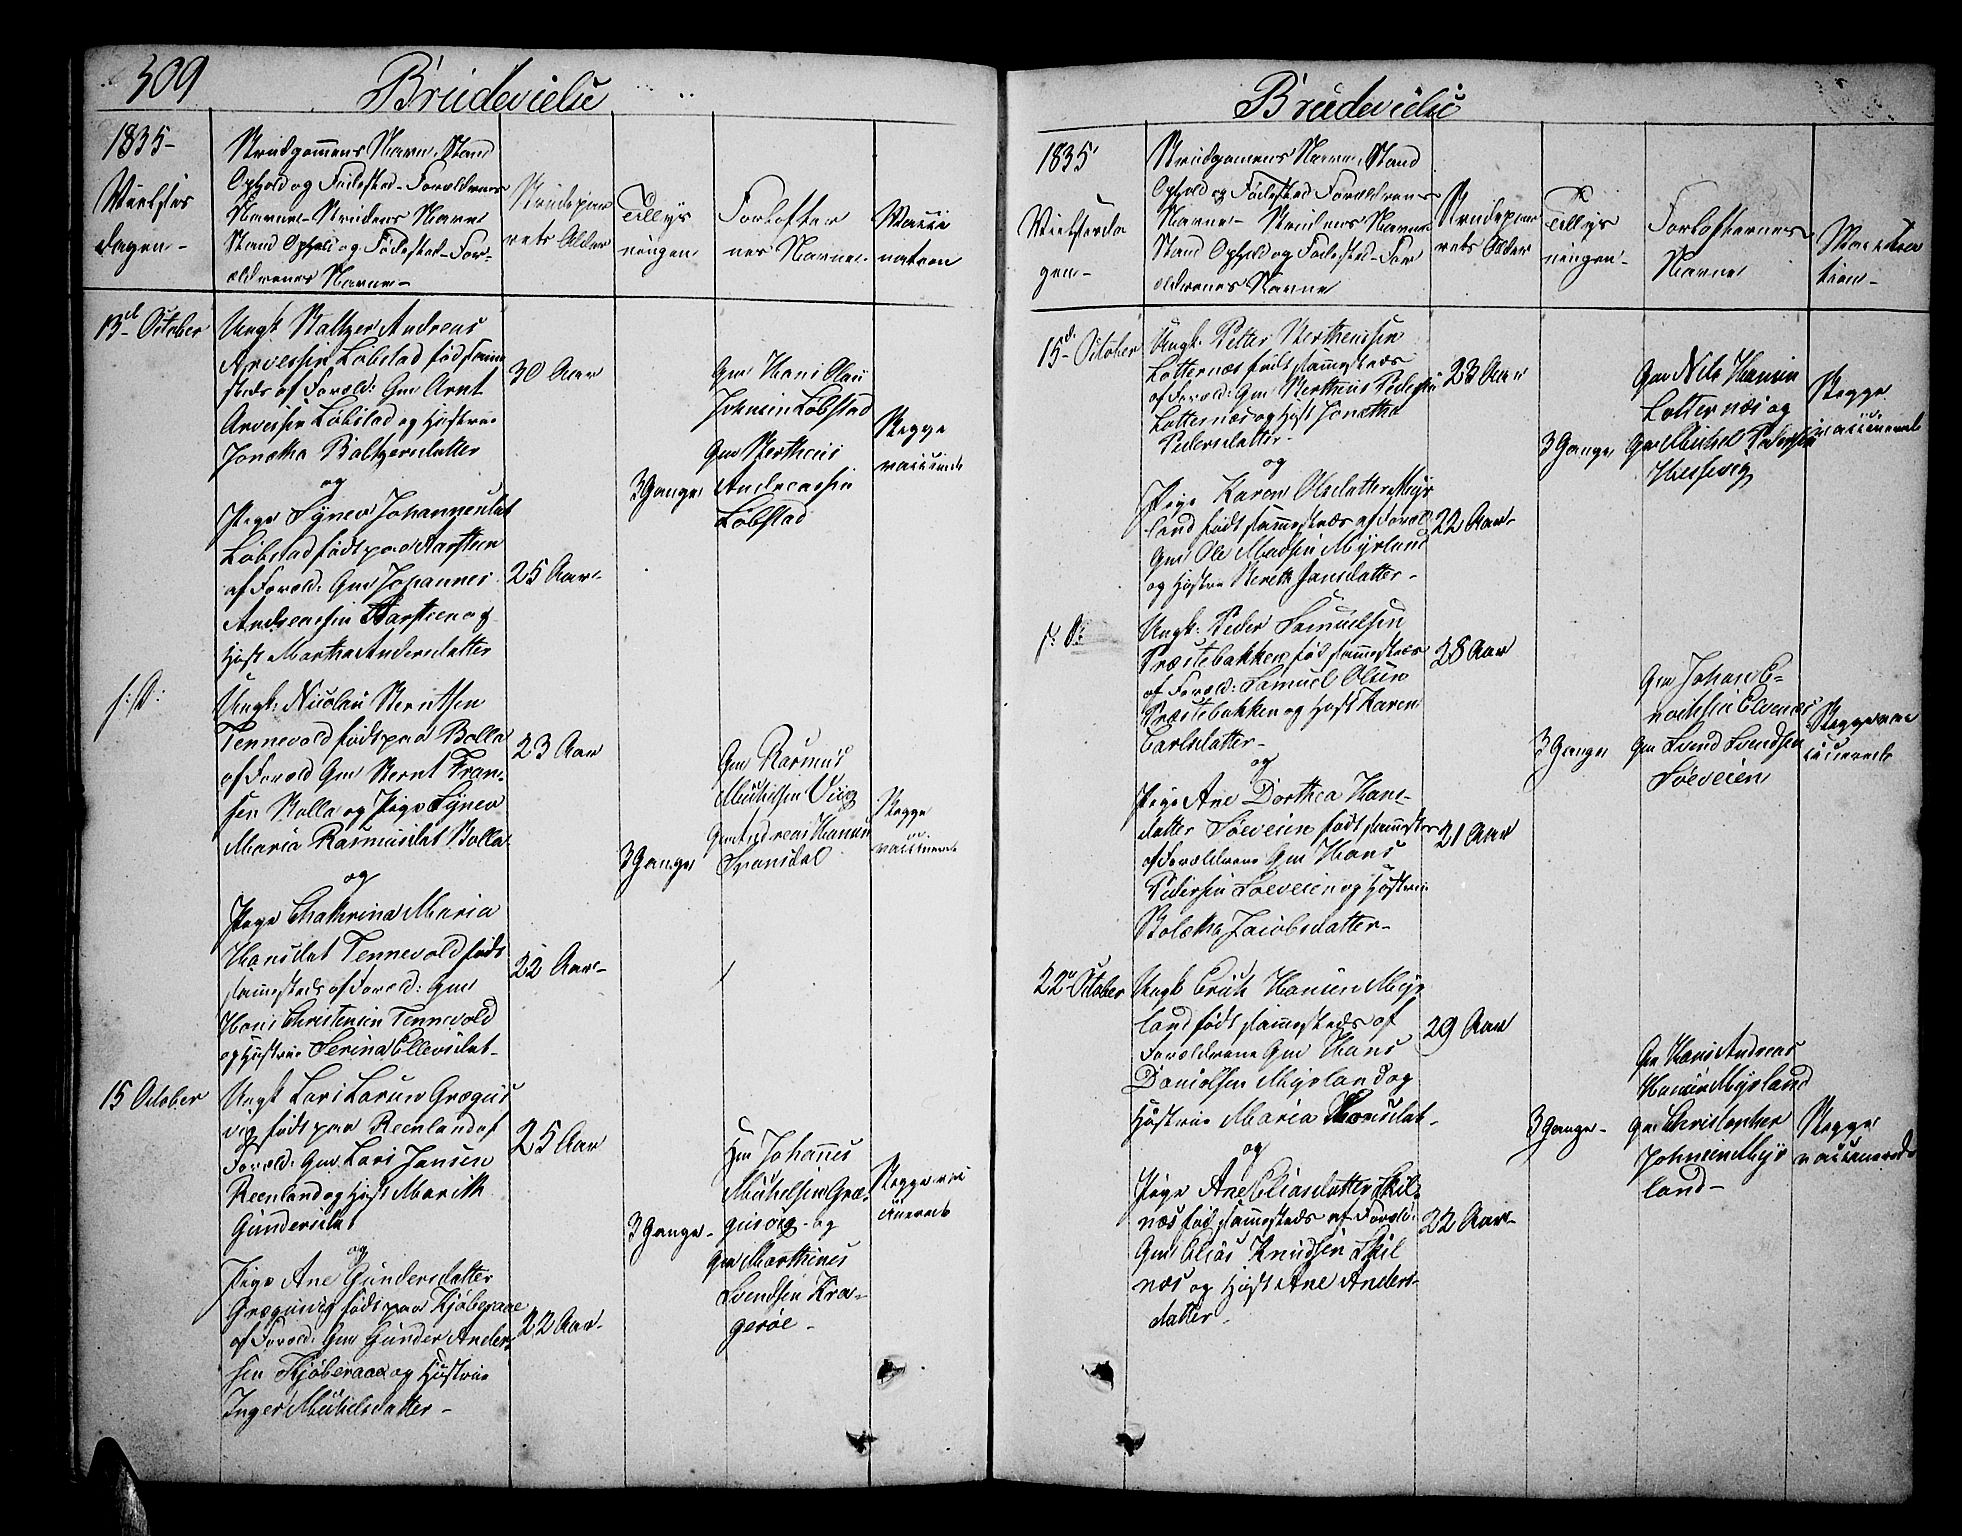 309
Brudevielse
1835-
Vielses
dagen-
Brudgommens Navn, Stand
Ophold og Födested-Forældrenes
Navne-Brudens Navn
Stand Ophold og Födested-For-
ældrenes Navne-
Brudepar
rets Alder
Tillys
ningen
Forlofter
nes Navne.
Vacci
nation
13d October
Ungk Baltzer Andreas
Arvessen Löbstad föd samme
steds af Foræld: Gm Arnt
Arvessen Löbstad og Hustrue
Jonetha Baltzersdatter
30 Aar
og
Pige Synev Johannesdat
Löbstad födt paa Aarsteen
af Foræld: Gm Johannes
Andreassen Aarsteen og
Hust Martha Andersdatter
25 Aar-
3 Gange
Gm Hans Olai
Johnsen Löbstad
Gm Bertheus
Andreassen
Löbstad
Begge
vaccinerede
s: D:
Ungk: Nicolai Berntsen
Tennevold födt paa Bolla
af Foræld Gm Bernt Fran-
sen Bolla og Pige Synev
Maria Rasmusdat Bolla
23 Aar
og
Pige Chathrina Maria
Hansdat Tennevold födt
sammesteds af Foræld: Gm
Hans Christensen Tennevold
og Hustrue Serina Ellevsdat-
22 Aar-
3 Gange
Gm Rasmus
Michelsen Viig
Gm Andreas Hansen
Svansdal
Begge
vaccinerede
15 October
Ungk Lars Larsen Grægus
vig födt paa Reenland af
Foræld: Gm Lars Jansen
Reenland og Hust Marith
Gundersdat
25 Aar
og
Pige Ane Gundersdatter
Grægusvig födt paa Kjöberaae
af Foræld: Gm Gunder Ander-
sen Kjöberaae og Hustrue
Inger Michelsdatter-
22 Aar-
3 Gange-
Gm Johannes
Michelsen Græ-
gusvig- og
Gm Marthines
Svendsen Kra-
geröe-
Begge vac
cinerede
Brudevielse
1835
Vielserda
gen-
Brudgommens Navn, Stand
Ophold og Födested Forældrenes
Navne- Brudens Navn
Stand Ophold og Födested-For
ældrenes Navne
Brudepar
rets Alder
Tillys
ningen-
Forlofternes
Navne
Vaccina
tion-
15d October
Ungk. Petter Bertheussen
Lotternæs födt sammesteds
af Foræld: Gm Bertheus Pedersen
Lotternæs og Hust Jonetha
Pedersdatter-
23 Aar
og
Pige Karen Olsdatter Myr
land födt sammesteds af Foræl:
Gm Ole Madsen Myrland
og Hustrue Bereth Jansdatter-
22 Aar-
3 Gange
Gm Nils Hansen
Lotternæs og
Gm Michel Pedersen
Hessevig
Begge
vaccinerede
s: D:
Ungk: Peder Samuelsen
Præstebakken föd sammesteds
af Foræld: Samuel Olsen
Præstebakken og Hust Karen
Carlsdatter-
28 Aar
og
Pige Ane Dorthea Hans-
datter Söeveien födt sammesteds
af Forældrene Gm Hans
Pedersen Söeveien og Hustrue
Boletha Jacobsdatter-
21 Aar
3 Gange
Gm Johan E-
nochsen Elvenæs
Gm Svend Svendsen
Söeveien
Begge vac
cinerede
22 October
Ungk Erich Hansen Myr
land födt sammesteds af
Forældrene Gm Hans
Danielsen Myrland og
Hustrue Maria Hansdat-
29 Aar
og
Pige Ane Eliasdatter Skil
næs föd sammesteds af Foræld:
Gm Elias Knudsen Skil
næs og Hust Ane Anders-
datter-
22 Aar-
3 Gange-
Gm Hans Andreas
Hansen Myrland
Gm Christopher
Johnsen Myr
land-
Begge
vaccinerede